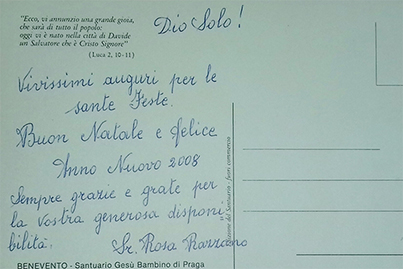 "Ecco, vi annunzio una grande gioia,
che sarà di tutto il popolo:
oggi vi è nato nella città di Davide
un Salvatore che è Cristo Signore"
(Luca 2, 10-11)
Dio Solo!
Vivissimi auguri per le
sante Feste.
Buon Natale e felice
Anno Nuovo 2008
Sempre grazie e grate per
la vostra generosa disponi
bilità.
Sr. Rosa
BENEVENTO - Santuario Gesù Bambino di Praga
del Santuario - fuori commercio